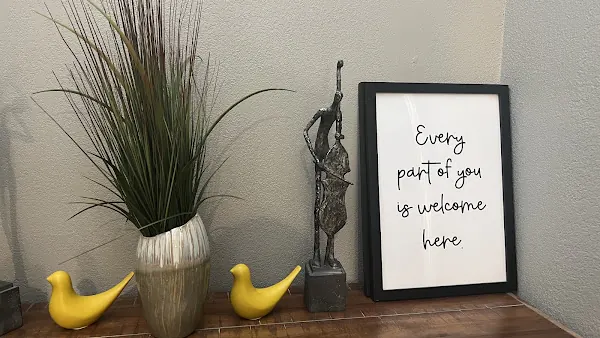 Every
part of you
is welcome
here.